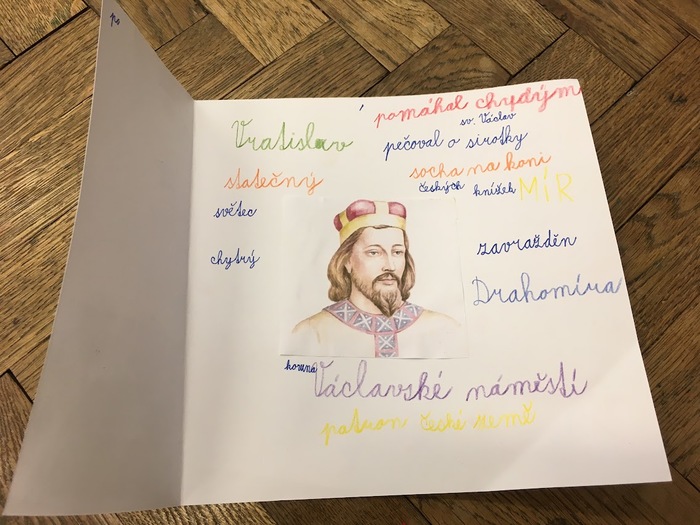 pomáhal chydým
sv. Václav
Vratislav
pečoval o sirotky
socha na koni
statečný
českých knížek
MÍR
světec
zavražděn
chytrý
Drahomíra
koruna
Václavské náměstí
patron české země